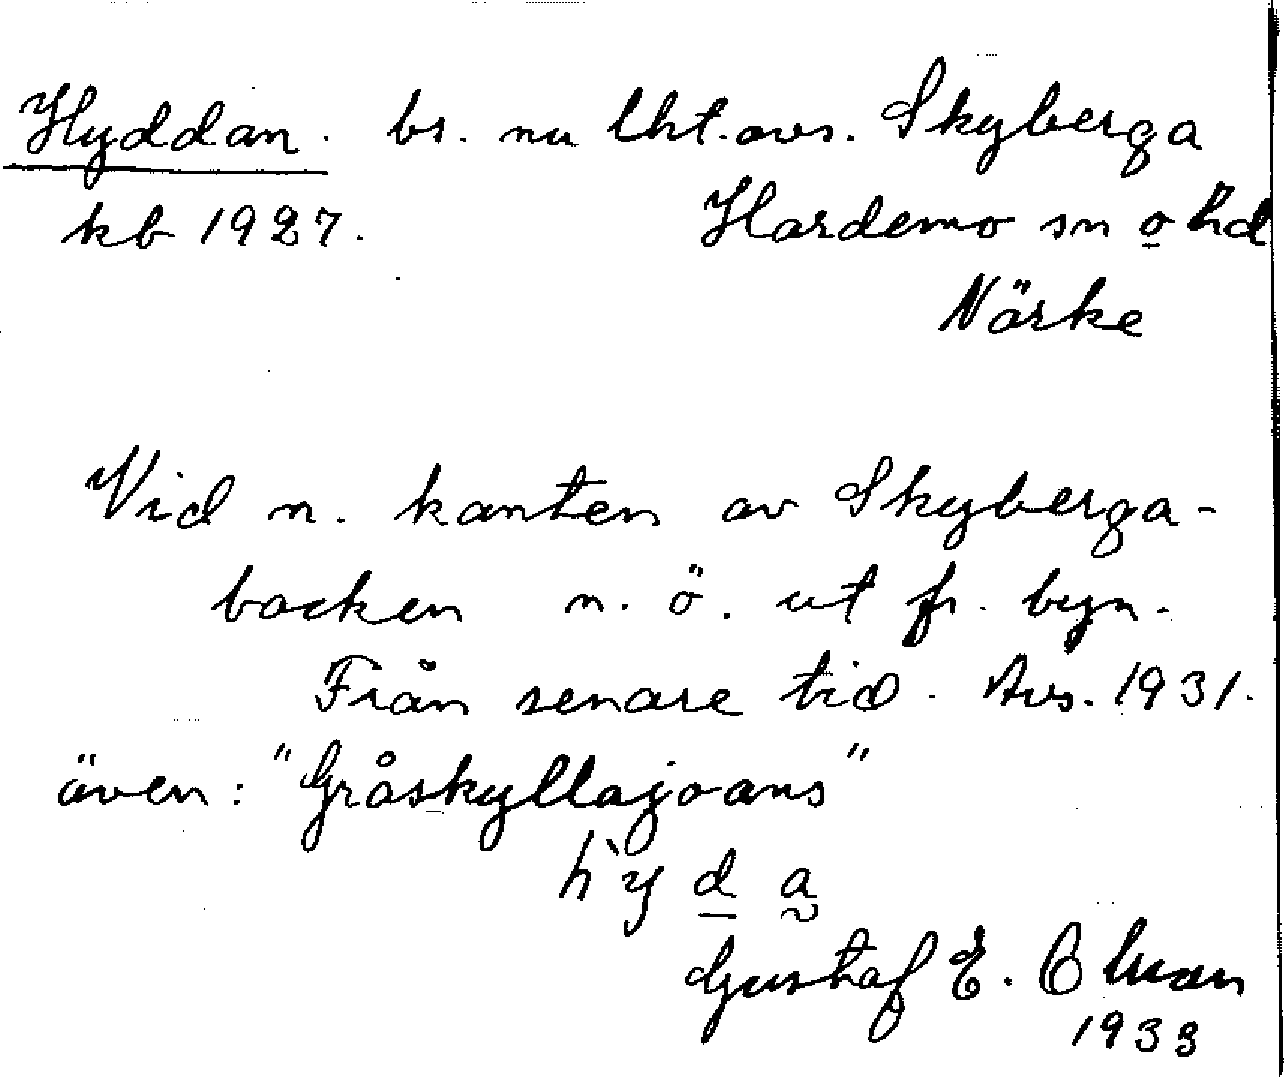 Hyddan. bs. nu lht. avs. Skyberga
kb 1927. Hardemo sn o hd
Närke
Vid n. kanten av Skyberga-
backen n. ö. ut fr. byn.
Från senare tid. Avs. 1931.
även: "Gråskyllajoans"
hỳda
Gustaf E.
1933